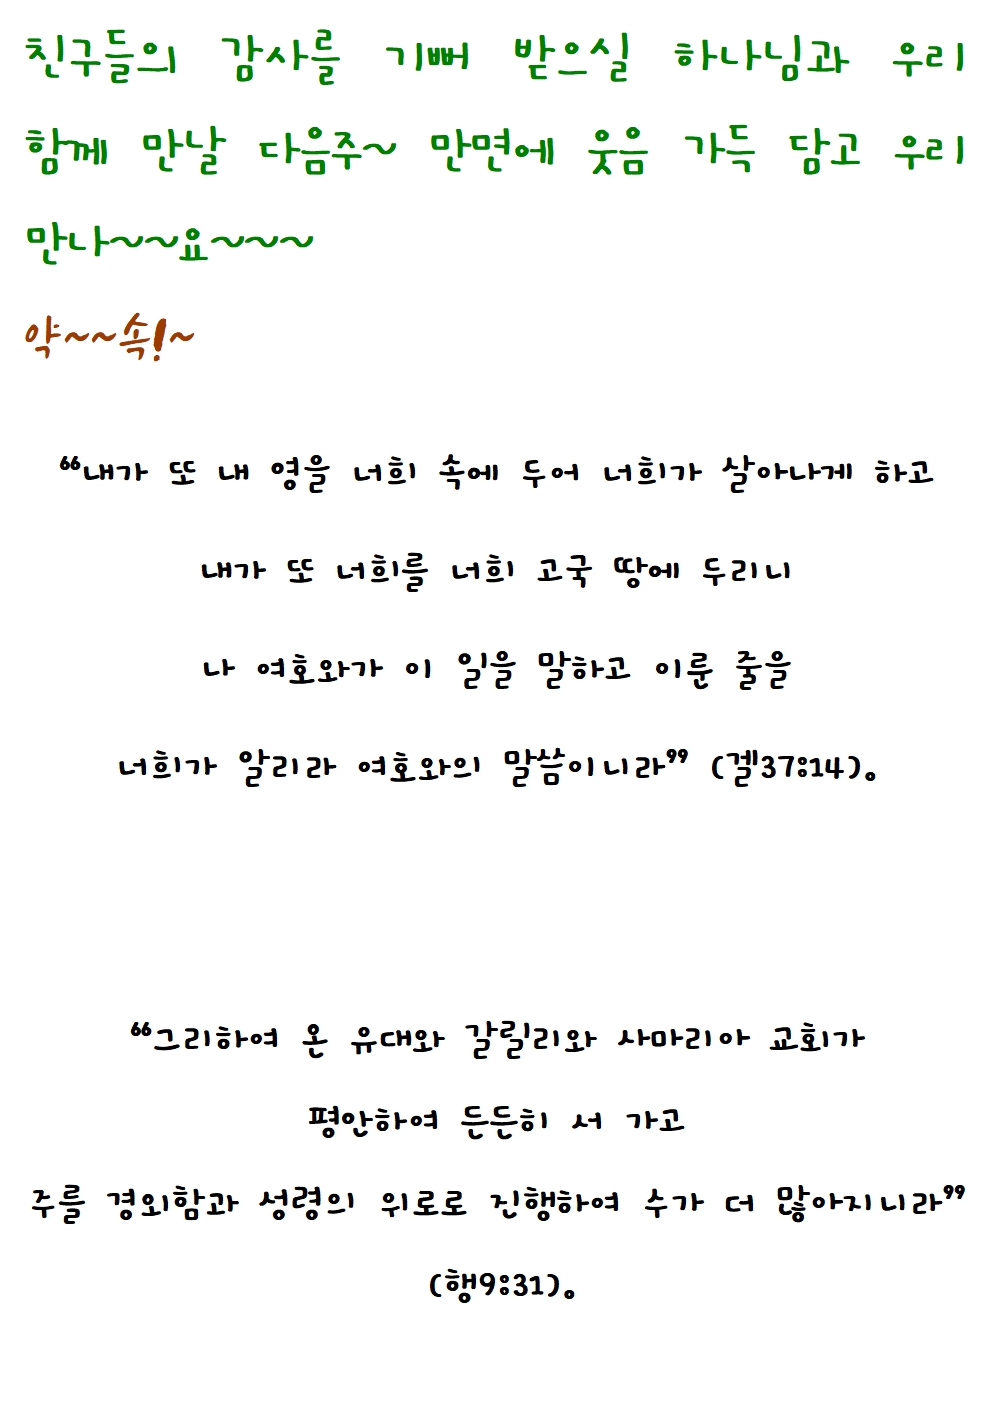 친구들의 감사를 기뻐 받으실 하나님과 우리
함께 만날 다음주~ 만면에 웃음 가득 담고 우리
만나~~요~~~
약~~속!~
“내가 또 내 영을 너희 속에 두어 너희가 살아나게 하고
내가 또 너희를 너희 고국 땅에 두리니
나 여호와가 이 일을 말하고 이룬 줄을
너희가 알리라 여호와의 말씀이니라” (겔37:14)。
“그리하여 온 유대와 갈릴리와 사마리아 교회가
평안하여 든든히 서 가고
주를 경외함과 성령의 위로로 진행하여 수가 더 많아지니라”
(행9:31)。